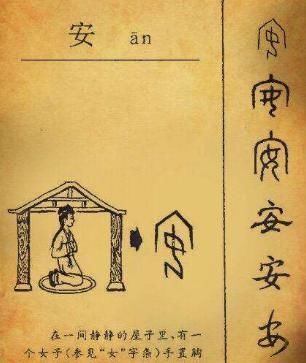 安 ān
在一间静静的屋子里,有一
个女子(参见“女”字条)手置胸
安
安
安
安
安
安